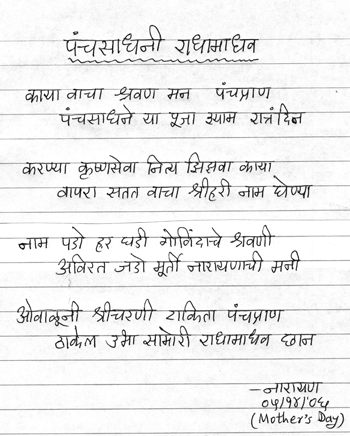 पंचसाधनी राधामाधव
काया वाचा श्रवण मन पंचप्राण
पंचसाधने या पूजा श्याम रात्रंदिन
करण्या कृष्णसेवा नित्य झिझवा काया
वापरा सतत वाचा श्रीहरी नाम घेण्या
नाम पडो हर घडी गोविंदाचे श्रवणी
अविरत जडो मूर्ती नारायणाची मनी
ओवाळूनी श्रीचरणी टाकिता पंचप्राण
ठाकेल उभा सामोरी राधामाधव छान
—नारायण
०५/१४/०६
(Mother's Day)